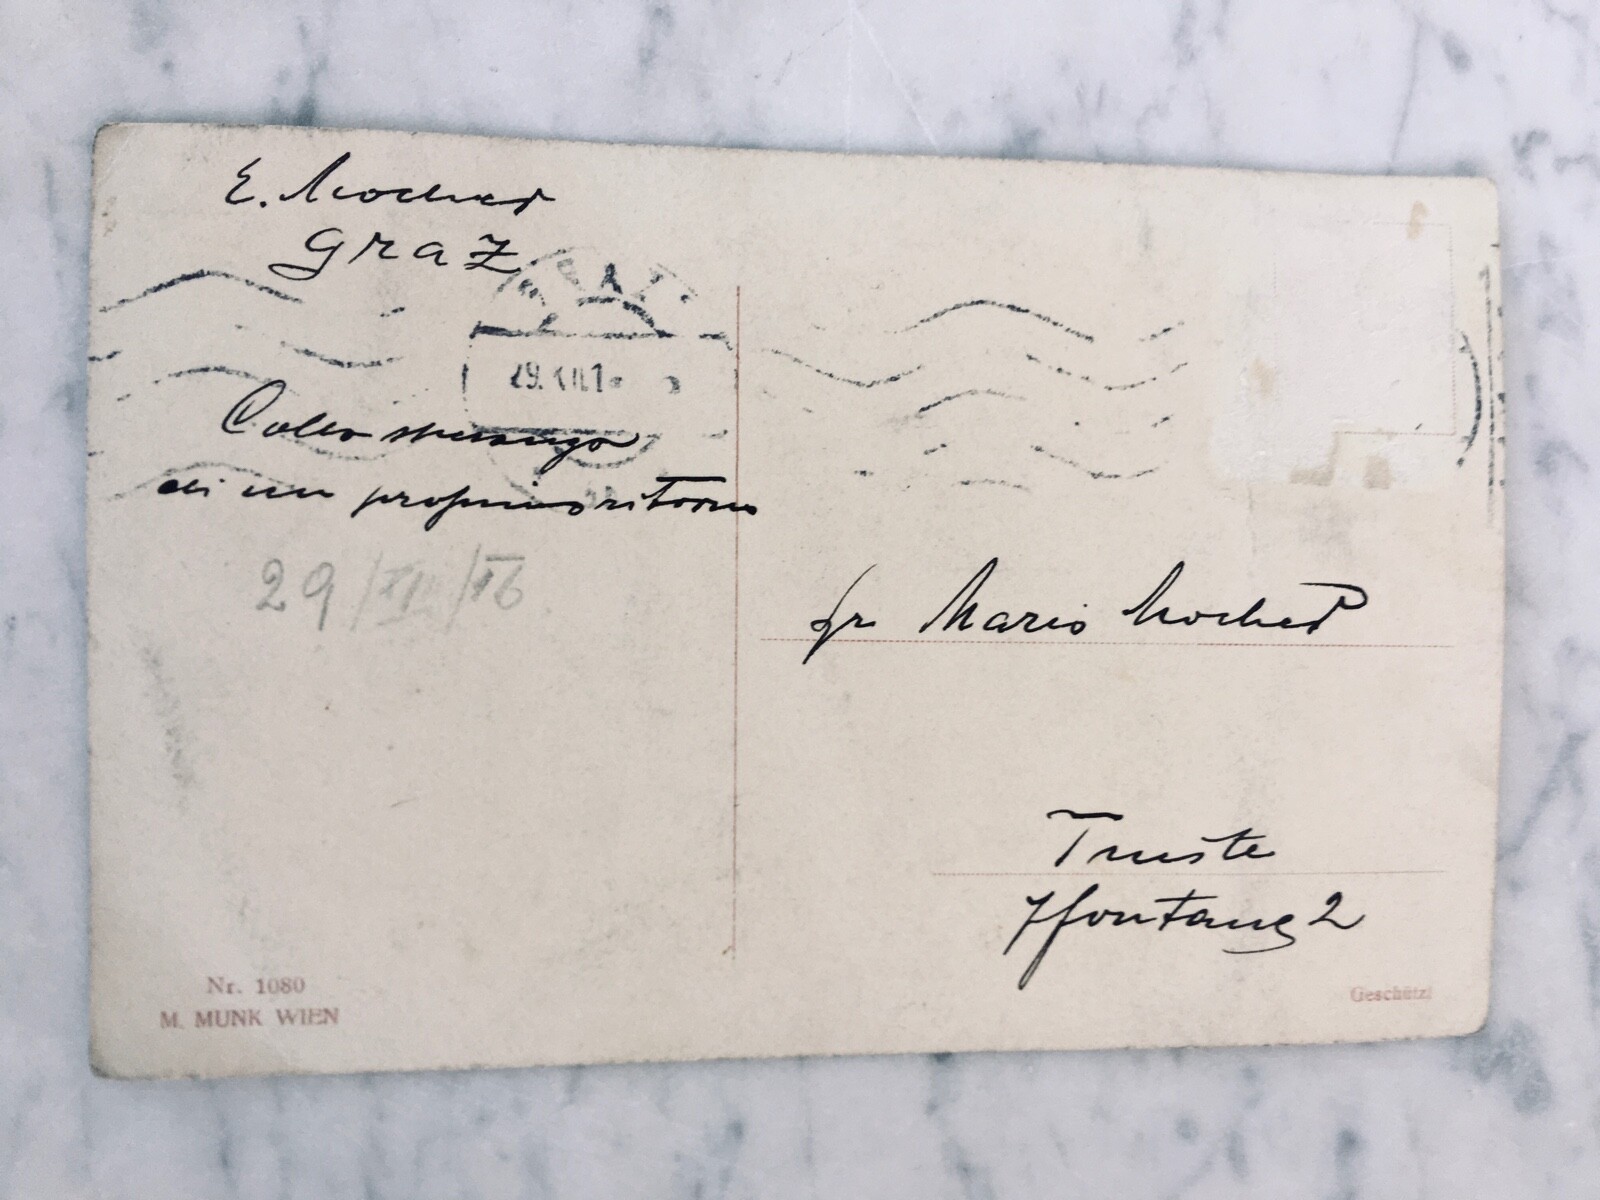 E. Mochet
Graz
GRAZ
29.XII.1
Colla speranza
di un prossimo ritorno
29/XII/16
Mario Mochet
Trieste
fontana 2
Nr. 1080
M. MUNK WIEN
Geschützt